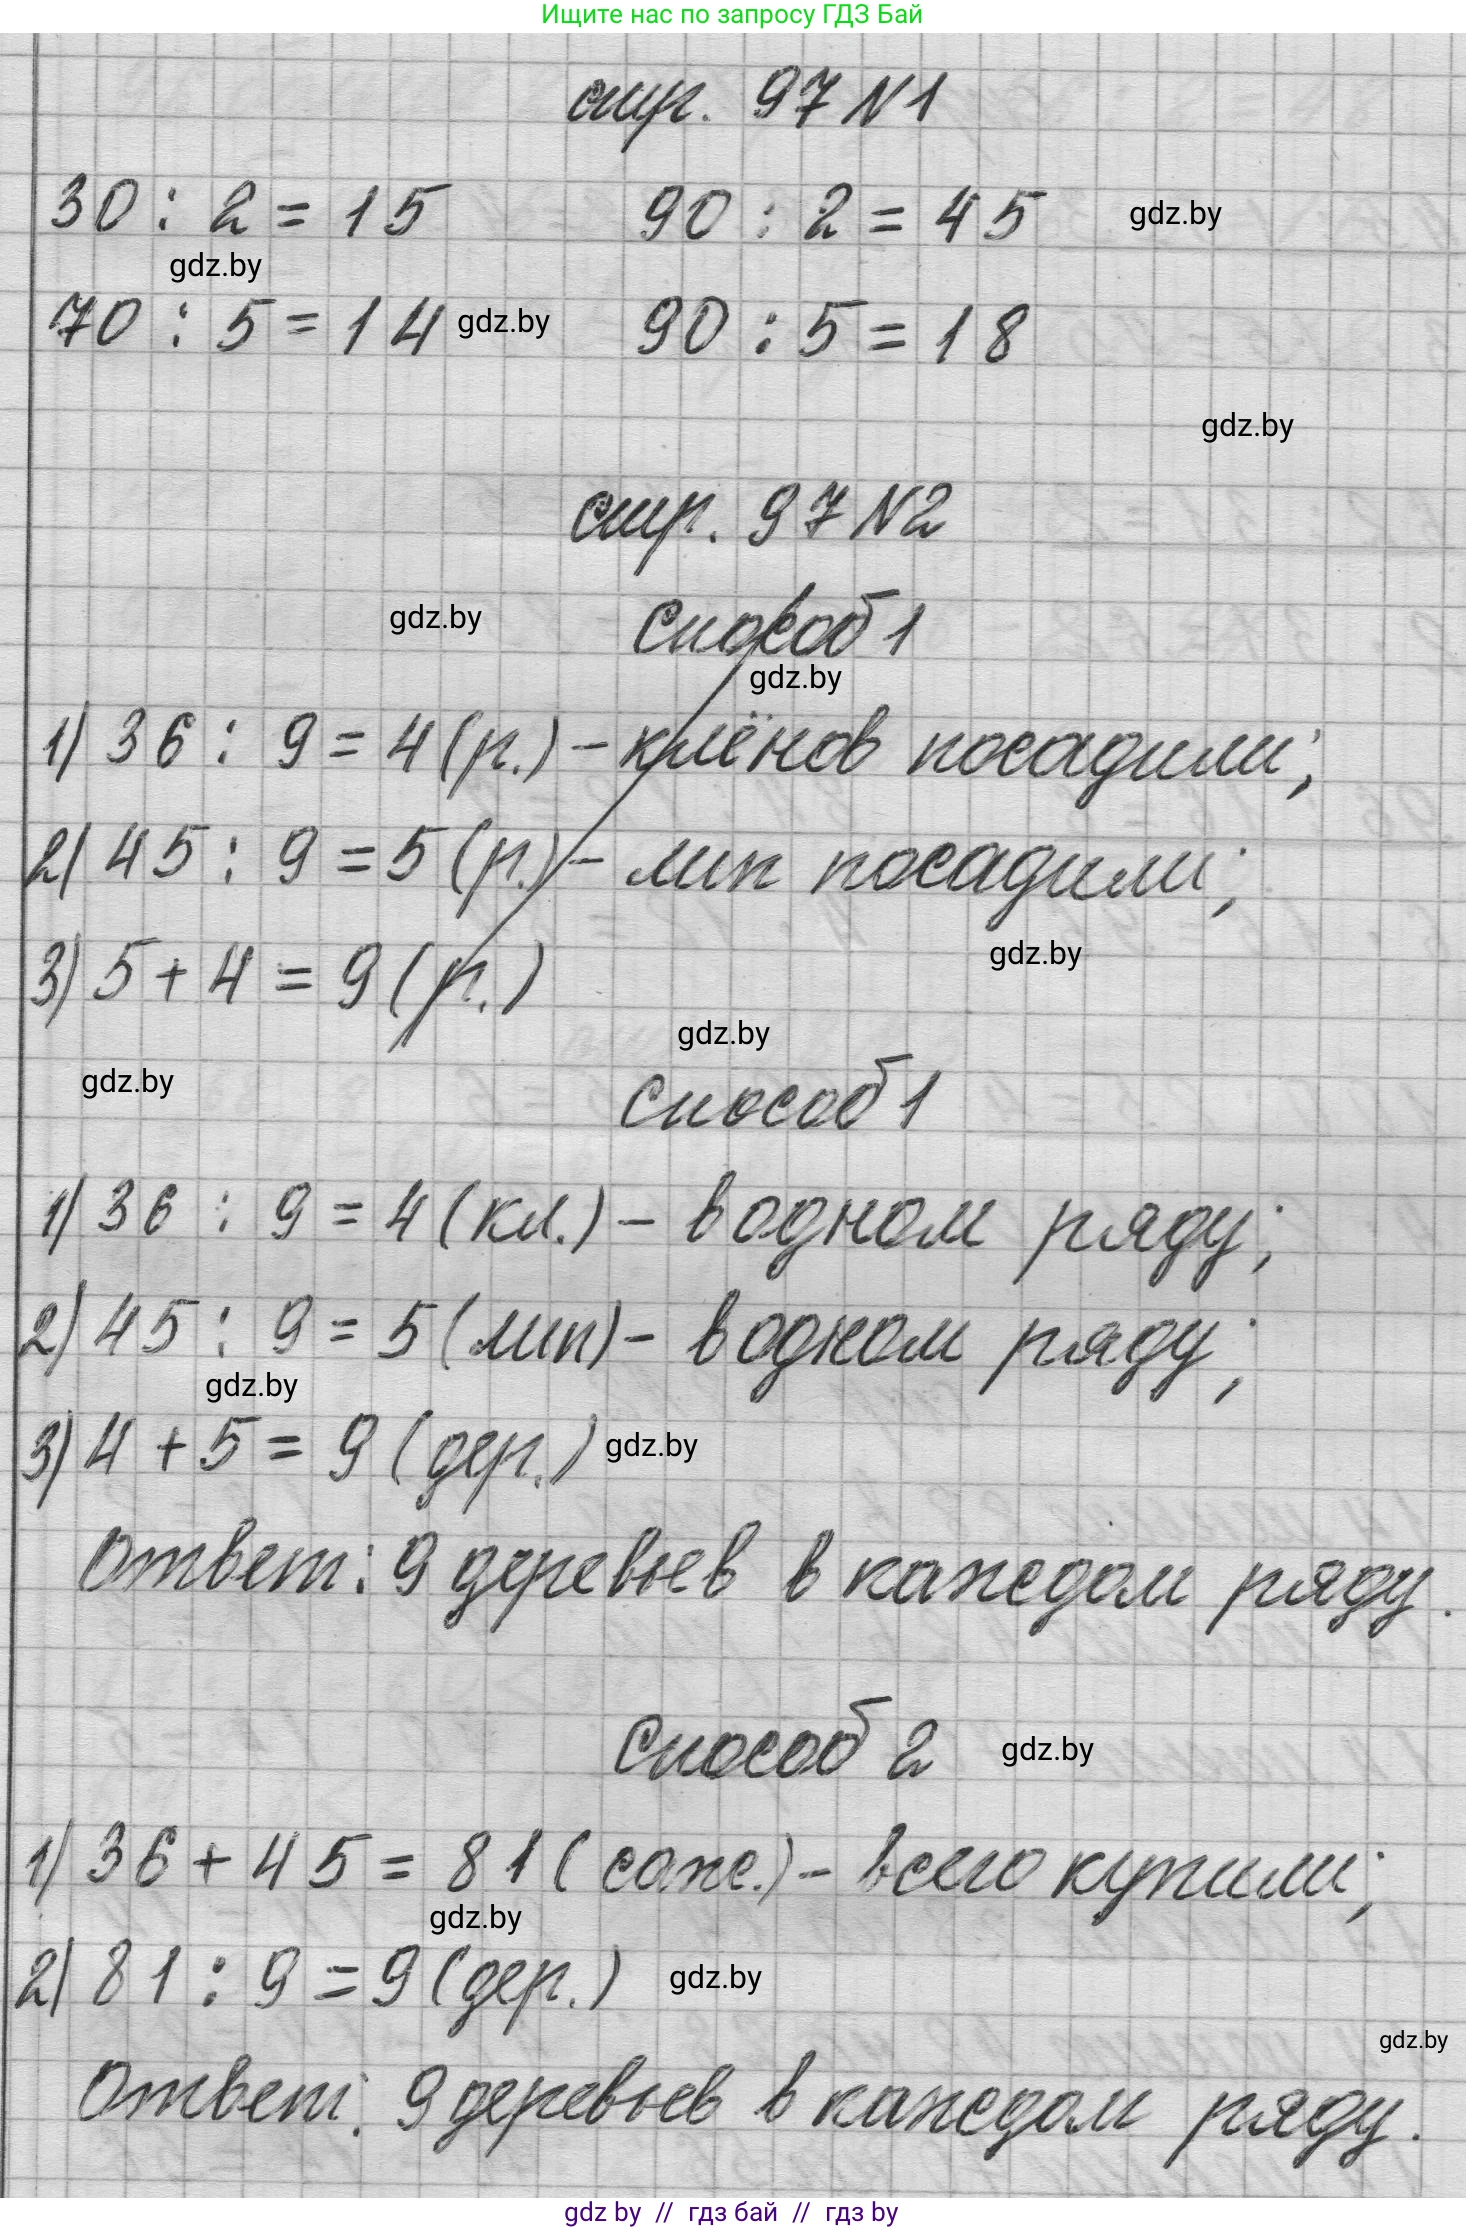 Ищите нас по запросу ГДЗ Бай
стр. 97 N1
30 : 2 = 15 90 : 2 = 45 gdz.by
gdz.by
70 : 5 = 14 gdz.by 90 : 5 = 18
gdz.by
стр. 97 N2
gdz.by Способ 1
gdz.by
1) 36 : 9 = 4 (р.) – клёнов посадили;
2) 45 : 9 = 5 (р.) – лип посадили;
3) 5 + 4 = 9 (р.) gdz.by
gdz.by
gdz.by Способ 1
1) 36 : 9 = 4 (кл.) – в одном ряду;
2) 45 : 9 = 5 (лип) – в одном ряду;
gdz.by
3) 4 + 5 = 9 (дер.) gdz.by
Ответ: 9 деревьев в каждом ряду.
Способ 2 gdz.by
1) 36 + 45 = 81 (саж.) – всего купили;
gdz.by
2) 81 : 9 = 9 (дер.) gdz.by
gdz.by
Ответ: 9 деревьев в каждом ряду.
gdz by // гдз бай // гдз by